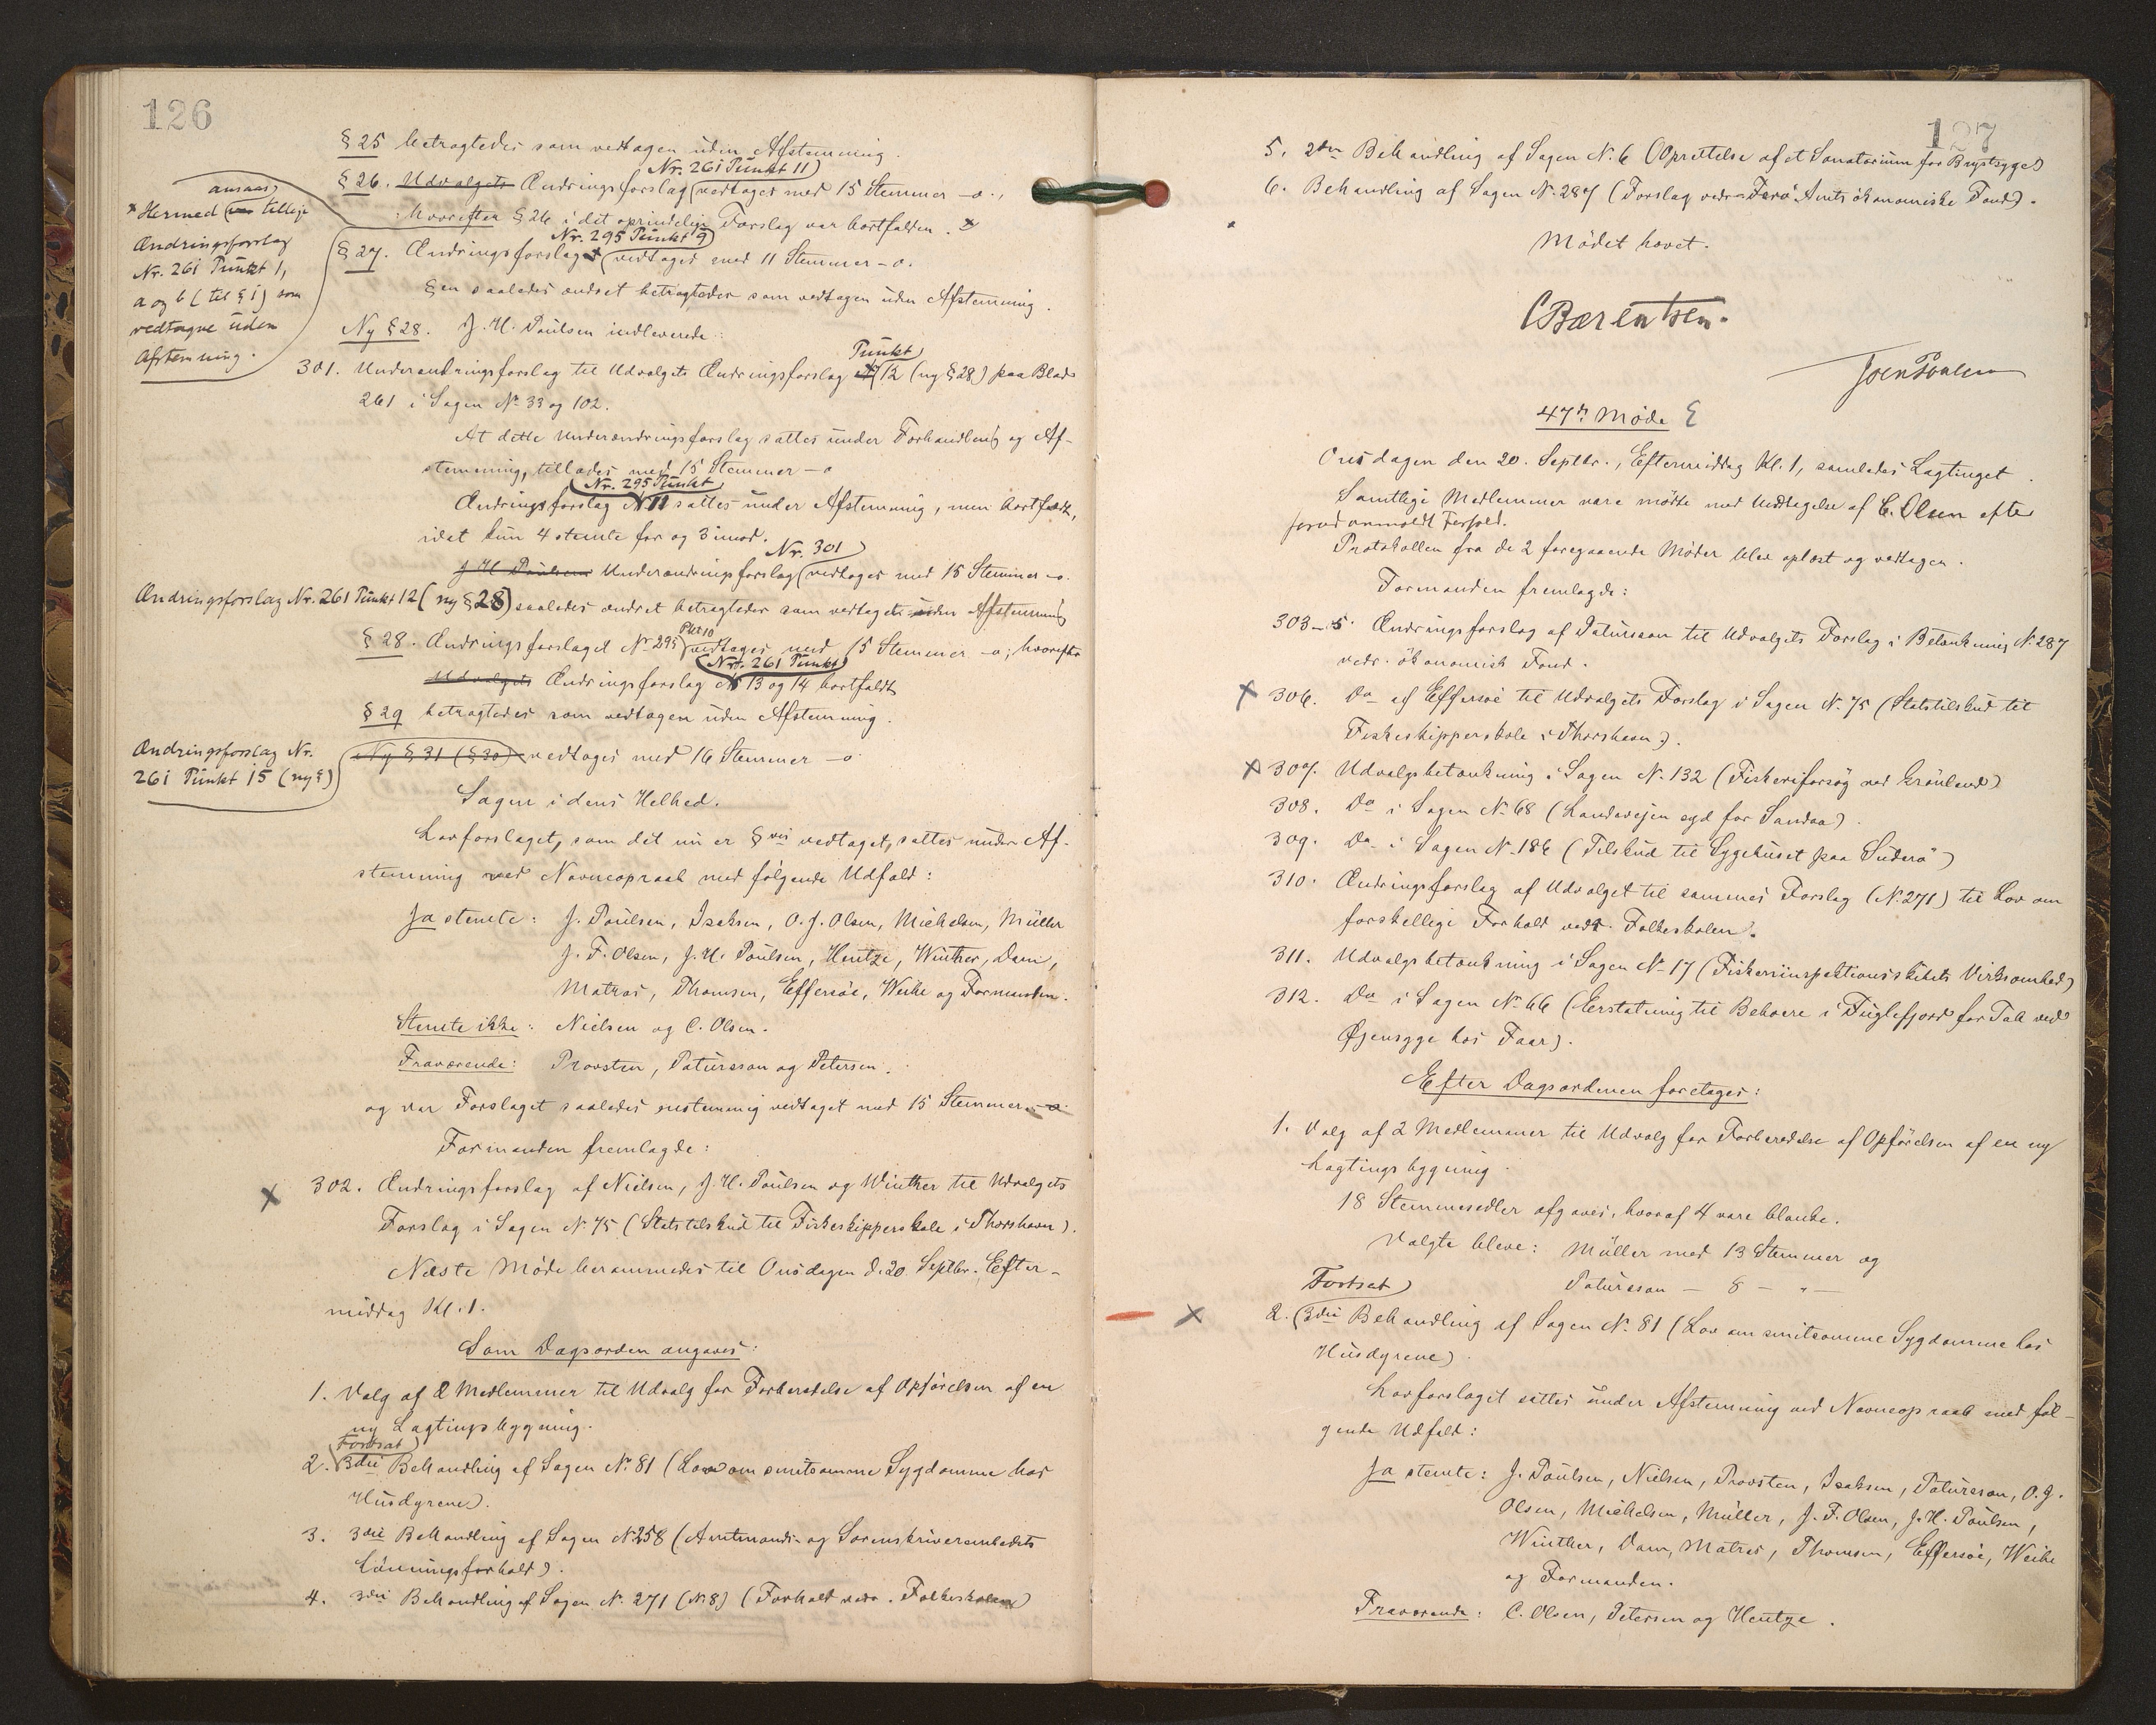 126
§ 25 betragtedes som vedtagen uden Afstemning.
Nr. 261 Punkt 11
§ 26. Udvalgets Ændringsforslag vedtoges med 15 Stemmer – o.,
hvorefter § 26 i det oprindelige Forslag var bortfalden. x
x Hermed ansaas tillige
Ændringsforslag
Nr. 261 Punkt 1,
a og b (til § 1) som
vedtagne uden
Afstemning.
Nr. 295 Punkt 9
§ 27. Ændringsforslaget vedtoges med 11 Stemmer – o.
§en saaledes ændret betragtedes som vedtagen uden Afstemning.
Ny § 28. J. H. Poulsen indleverede:
Punkt
301. Underændringsforslag til Udvalgets Ændringsforslag 12 (ny § 28) paa Blad
261 i Sagen Nº 33 og 102.
At dette Underændringsforslag sattes under Forhandling og Af-
stemning, tillodes med 15 Stemmer – o
Nr. 295 Punkt
Ændringsforslag 11 sattes under Afstemning, men bortfaldt,
idet kun 4 stemte for og 3 imod.
Nr. 301
J. H. Poulsens Underændringsforslag vedtoges med 15 Stemmer – o.
Ændringsforslag Nr. 261 Punkt 12 (ny § 28) saaledes ændret betragtedes som vedtaget uden Afstemning
Pkt 10
§ 28. Ændringsforslaget Nº 295 vedtoges med 15 Stemmer – o; hvorefter
Nr. 261 Punkt
Udvalgets Ændringsforslag 13 og 14 bortfaldt
§ 29 betragtedes som vedtagen uden Afstemning.
Ændringsforslag Nr.
261 Punkt 15 (ny §)
Ny § 31 (§ 30) vedtoges med 16 Stemmer – o
Sagen i dens Helhed.
Lovforslaget, som det nu er §vis vedtaget, sattes under Af-
stemning ved Navneopraab med følgende Udfald:
Ja stemte: J. Poulsen, Isaksen, O. J. Olsen, Michelsen, Müller
J. F. Olsen, J. H. Poulsen, Heutze, Winther, Dam,
Matras, Thomsen, Effersøe, Weihe og Formanden.
Stemte ikke: Nielsen og C. Olsen.
Fraværende: Provsten, Patursson og Petersen.
og var Forslaget saaledes enstemmig vedtaget med 15 Stemmer – o.
Formanden fremlagde:
x 302. Ændringsforslag af Nielsen, J. H. Poulsen og Winther til Udvalgets
Forslag i Sagen Nº 75 (Statstilskud til Fiskeskipperskole i Thorshavn).
Næste Møde berammedes til Onsdagen d. 20. Septbr. Efter-
middag Kl. 1.
Som Dagsorden angaves:
1. Valg af 2 Medlemmer til Udvalg for Forberedelse af Opførelsen af en
ny Lagtingsbygning.
Fortsat
2. 3die Behandling af Sagen Nº 81 (Lov om smitsomme Sygdomme hos
Husdyrene).
3. 3die Behandling af Sagen Nº 258 (Amtmands- og Sorenskriverembedets
Lønningsforhold).
4. 3die Behandling af Sagen Nº 271 (Nº 8) (Forhold vedr. Folkeskolen)
127
5. 2den Behandling af Sagen Nº 6 (Oprettelse af et Sanatorium for Brystsyge)
6. Behandling af Sagen Nº 287 (Forslag vedr. Færø Amts økonomiske Fond).
Mødet hævet.
C Bærentsen.
Joen Poulsen
47de Møde
Onsdagen den 20. Septbr., Eftermiddag Kl. 1, samledes Lagtinget.
Samtlige Medlemmer vare mødte med Undtagelse af C. Olsen efter
forud anmeldt Forfald.
Protokollen fra de 2 foregaaende Møder blev oplæst og vedtagen.
Formanden fremlagde:
303–5. Ændringsforslag af Patursson til Udvalgets Forslag i Betænkning Nº 287
vedr. økonomisk Fond.
x 306. Do af Effersøe til Udvalgets Forslag i Sagen Nº 75 (Statstilskud til
Fiskeskipperskole i Thorshavn).
x 307. Udvalgsbetænkning i Sagen Nº 132 (Fiskeriforsøg ved Grønland)
308. Do i Sagen Nº 68 (Landevejen syd for Sandaa).
309. Do i Sagen Nº 186 (Tilskud til Sygehuset paa Suderø)
310. Ændringsforslag af Udvalget til sammes Forslag (Nº 271) til Lov om
forskellige Forhold vedr. Folkeskolen.
311. Udvalgsbetænkning i Sagen Nº 17 (Fiskeriinspektionsskibets Virksomhed)
312. Do i Sagen Nº 66 (Erstatning til Beboere i Fuglefjord for Tab ved
Øjensyge hos Faar).
Efter Dagsordenen foretoges:
1. Valg af 2 Medlemmer til Udvalg for Forberedelse af Opførelsen af en ny
Lagtingsbygning.
18 Stemmesedler afgaves, hvoraf 4 vare blanke.
Valgte bleve: Müller med 13 Stemmer og
Patursson – 8 – " –
Fortsat
x 2. 3die Behandling af Sagen Nº 81 (Lov om smitsomme Sygdomme hos
Husdyrene).
Lovforslaget sattes under Afstemning ved Navneopraab med føl-
gende Udfald:
Ja stemte: J. Poulsen, Nielsen, Provsten, Isaksen, Patursson, O. J.
Olsen, Michelsen, Müller, J. F. Olsen, J. H. Poulsen,
Winther, Dam, Matras, Thomsen, Effersøe, Weihe
og Formanden.
Fraværende: C. Olsen, Petersen og Heutze.